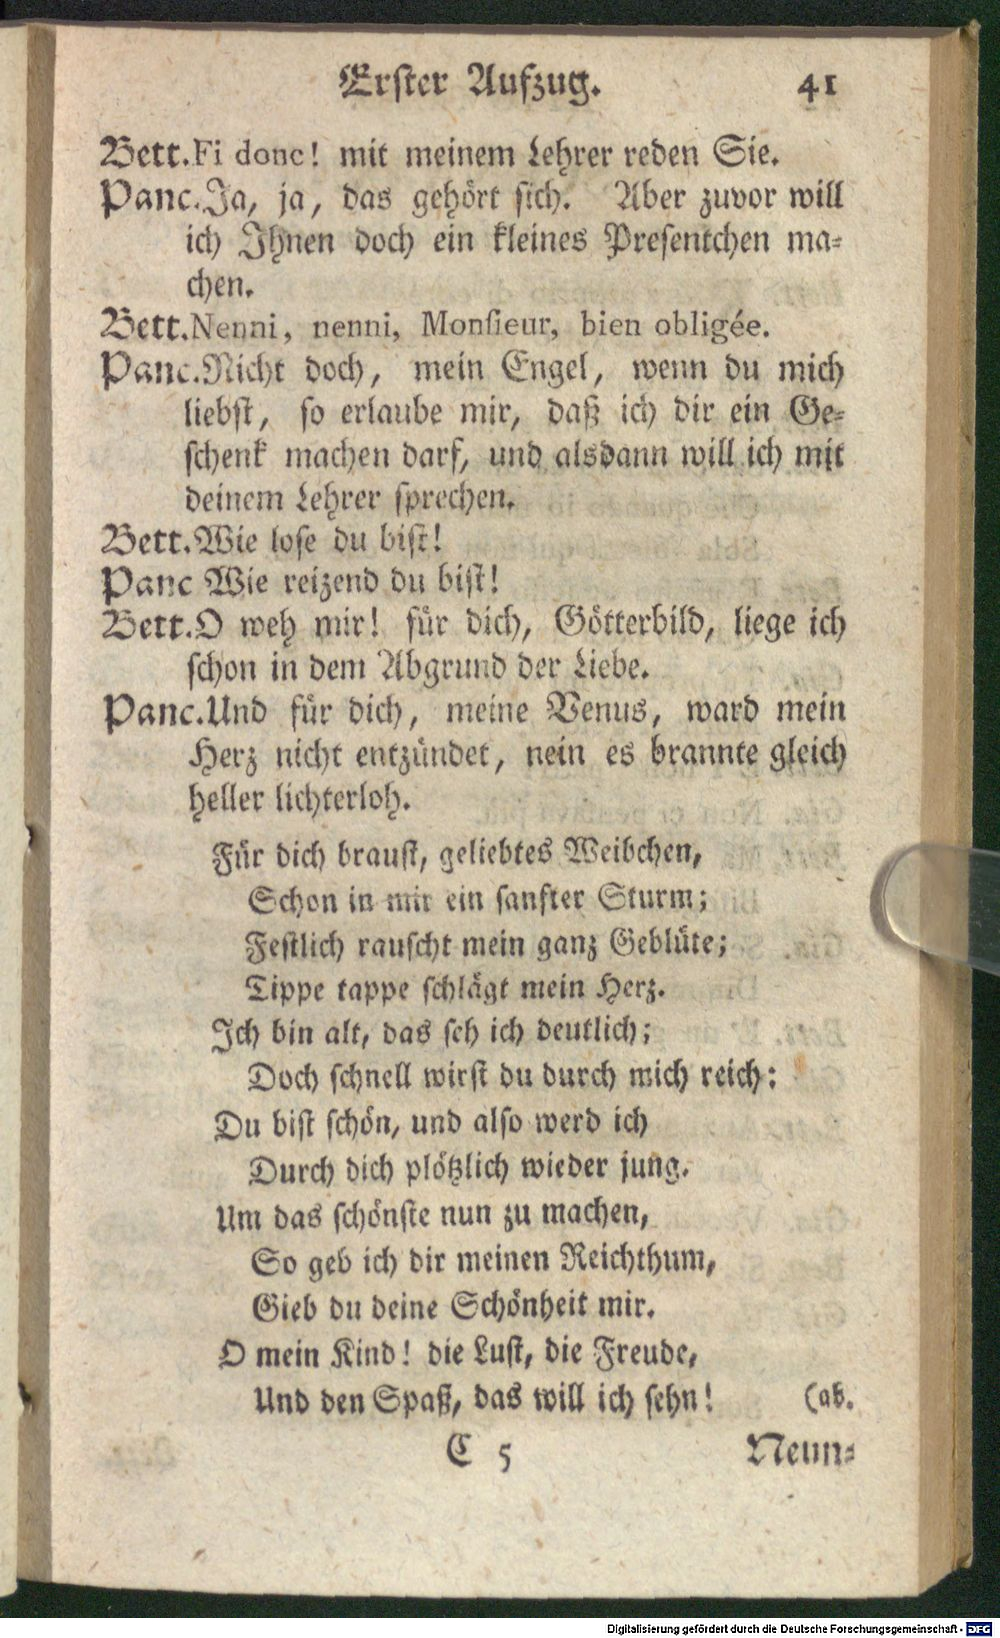 Erster Aufzug. 41
Bett. Fi donc! mit meinem Lehrer reden Sie.
Panc. Ja, ja, das gehört sich. Aber zuvor will
ich Ihnen doch ein kleines Presentchen ma-
chen.
Bett. Nenni, nenni, Monsieur, bien obligée.
Panc. Nicht doch, mein Engel, wenn du mich
liebst, so erlaube mir, daß ich dir ein Ge-
schenk machen darf, und alsdann will ich mit
deinem Lehrer sprechen.
Bett. Wie lose du bist!
Panc Wie reizend du bist!
Bett. O weh mir! für dich, Götterbild, liege ich
schon in dem Abgrund der Liebe.
Panc. Und für dich, meine Venus, ward mein
Herz nicht entzündet, nein es brannte gleich
heller lichterloh.
Für dich braust, geliebtes Weibchen,
Schon in mir ein sanfter Sturm;
Festlich rauscht mein ganz Geblüte;
Tippe tappe schlägt mein Herz.
Ich bin alt, das seh ich deutlich;
Doch schnell wirst du durch mich reich:
Du bist schön, und also werd ich
Durch dich plötzlich wieder jung.
Um das schönste nun zu machen,
So geb ich dir meinen Reichthum,
Gieb du deine Schönheit mir.
O mein Kind! die Lust, die Freude,
Und den Spaß, das will ich sehn! (ab.
C 5 Neun-
Digitalisierung gefördert durch die Deutsche Forschungsgemeinschaft - DFG